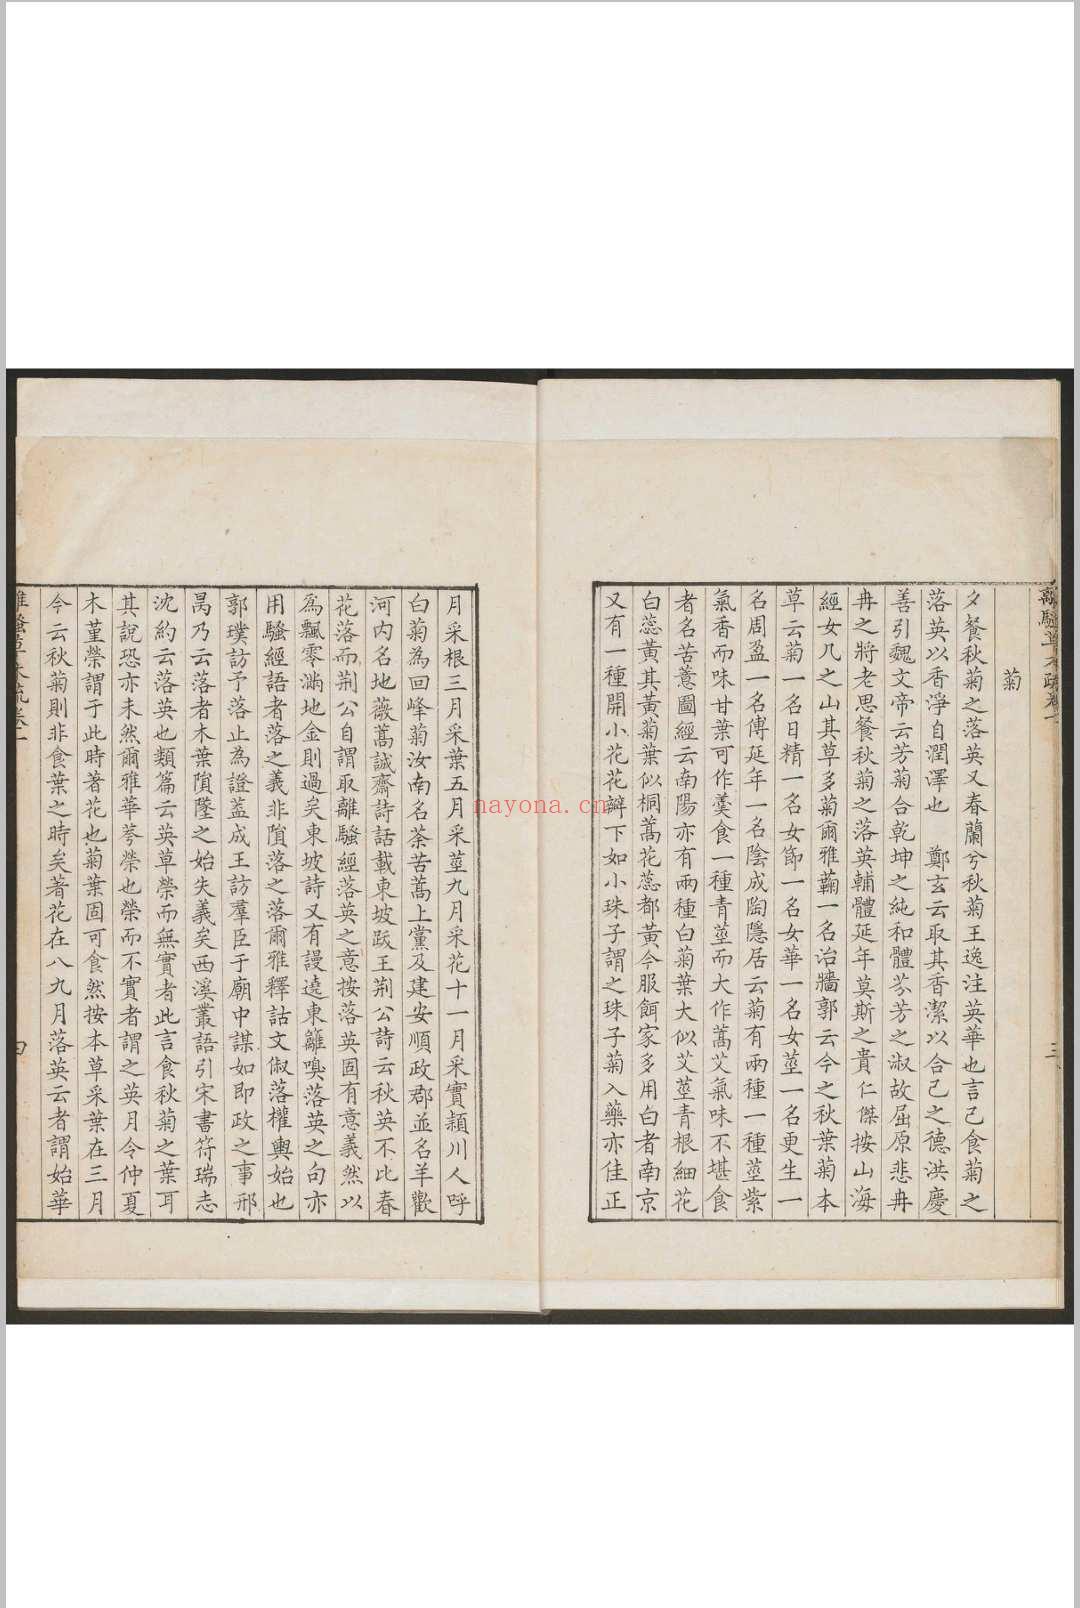 離騷草木疏卷一
三
菊
夕餐秋菊之落英又春蘭兮秋菊王逸注英華也言己食菊之
落英以香淨自潤澤也 鄭玄云取其香潔以合己之德洪慶
善引魏文帝云芳菊含乾坤之純和體芬芳之淑故屈原悲冉
冉之將老思餐秋菊之落英輔體延年莫斯之貴仁傑按山海
經女几之山其草多菊爾雅蘜一名治牆郭云今之秋葉菊本
草云菊一名日精一名女節一名女華一名女莖一名更生一
名周盈一名傅延年一名陰成陶隱居云菊有兩種一種莖紫
氣香而味甘葉可作羹食一種青莖而大作蒿艾氣味不堪食
者名苦薏圖經云南陽亦有兩種白菊葉大似艾莖青根細花
白蕊黃其黃菊葉似桐蒿花蕊都黃今服餌家多用白者南京
又有一種開小花花瓣下如小珠子謂之珠子菊入藥亦佳正
月采根三月采葉五月采莖九月采花十一月采實潁川人呼
白菊為回峰菊汝南名荼苦蒿上黨及建安順政郡並名羊歡
河內名地薇蒿誠齋詩話載東坡跋王荊公詩云秋英不比春
花落而荊公自謂取離騷經落英之意按落英固有意義然以
為飄零滿地金則過矣東坡詩又有謾遶東籬嗅落英之句亦
用騷經語者落之義非隕落之落爾雅釋詁文俶落權輿始也
郭璞訪予落止為證蓋成王訪羣臣于廟中謀如即政之事邢
昺乃云落者木葉隕墜之始失義矣西溪叢語引宋書符瑞志
沈約云落英也類篇云英草榮而無實者此言食秋菊之葉耳
其說恐亦未然爾雅華荂榮也榮而不實者謂之英月令仲夏
木堇榮謂于此時著花也菊葉固可食然按本草采葉在三月
今云秋菊則非食葉之時矣著花在八九月落英云者謂始華
離騷草木疏卷一
四
nayona.cn